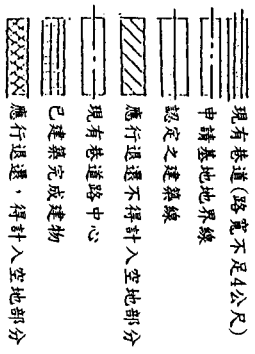 現有巷道(路寬不足4公尺)
申請基地地界線
認定之建築線
應行退還不得計入空地部分
現有巷道路中心
已建築完成建物
應行退還，得計入空地部分